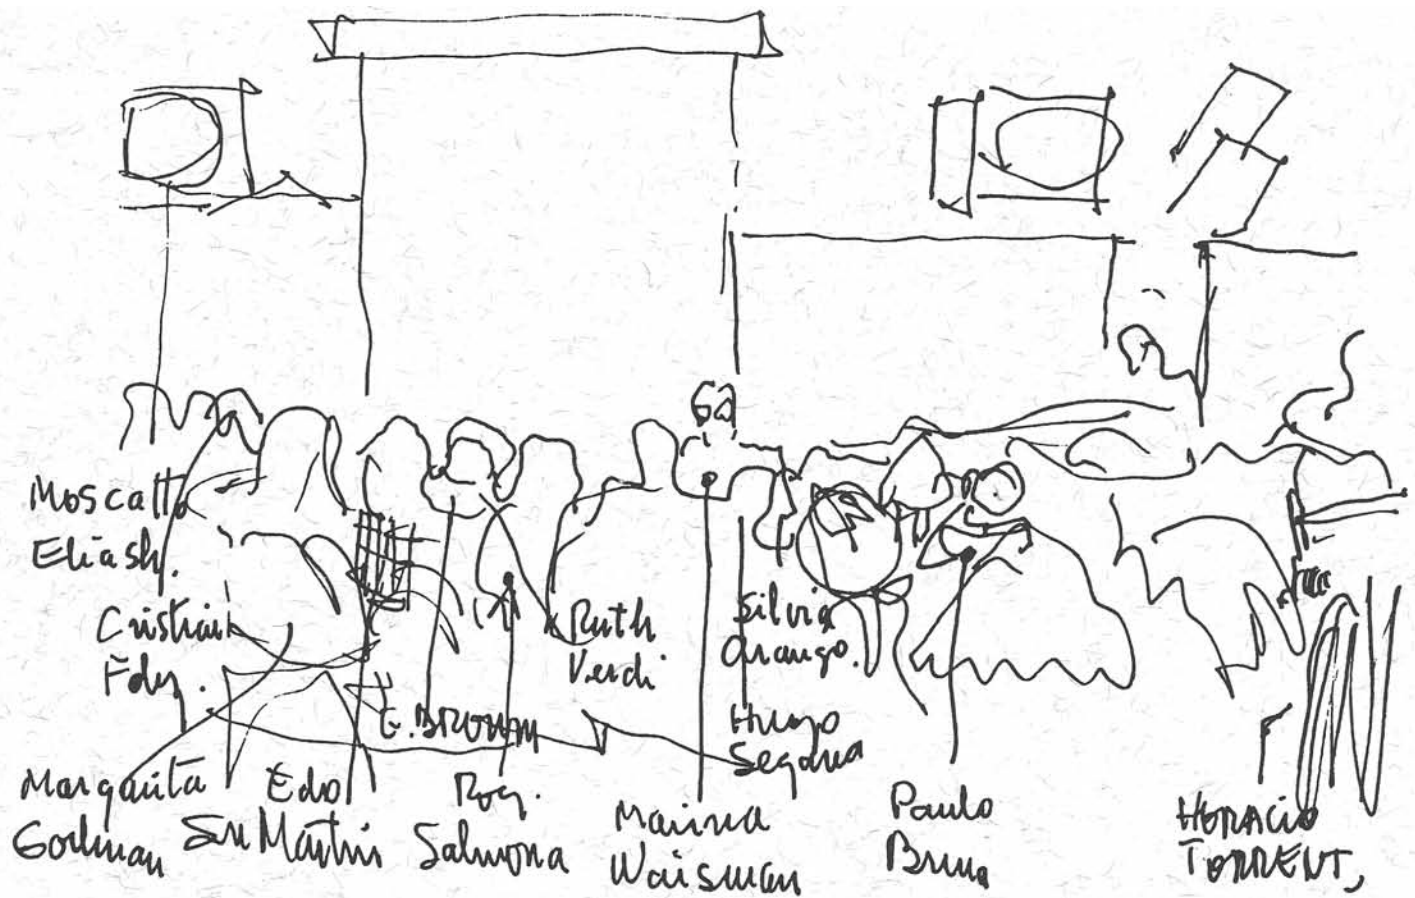 Moscatto
Eliash.
Cristian
Fdez.
Margarita
Gutman
Edo
San Martín
E. BROWN
Rog.
Salmona
Ruth
Verdi
Marina
Waisman
Silvia
Arango.
Hugo
Segawa
Paulo
Bruna
HORACIO
TORRENT,